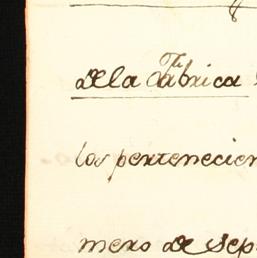 de la Fabrica
los pertenecien
mero de Sep